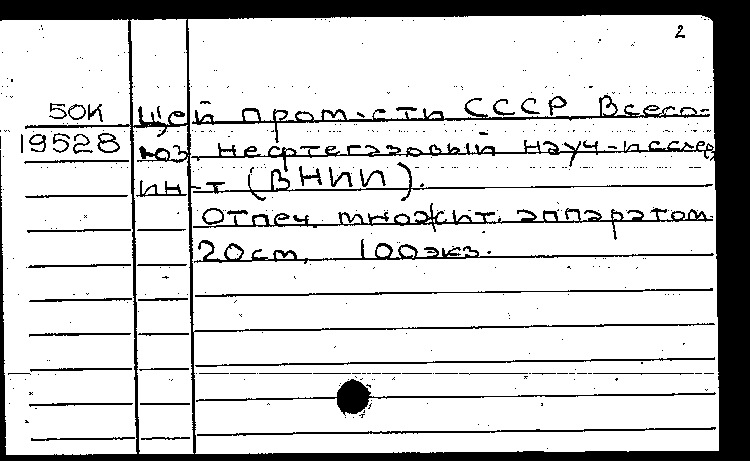 2
50К щей пром-сти СССР. Всесо-
19528 юз. нефтегазовый науч.-исслед.
ин-т (ВНИИ).
Отпеч. множит. аппаратом.
20 см. 100 экз.